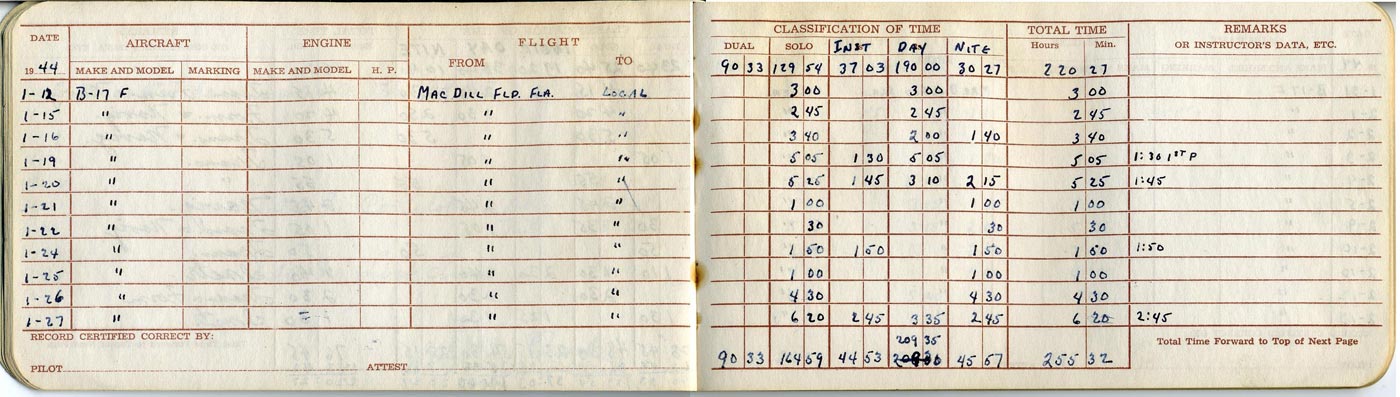 DATE AIRCRAFT ENGINE FLIGHT CLASSIFICATION OF TIME TOTAL TIME REMARKS
FROM TO DUAL SOLO INST DAY NITE Hours Min. OR INSTRUCTOR'S DATA, ETC.
1944 MAKE AND MODEL MARKING MAKE AND MODEL H. P. 90 33 129 54 37 03 190 00 30 27 220 27
1-12 B-17 F MAC DILL FLD. FLA. LOCAL 3 00 3 00 3 00
1-15 " " " 2 45 2 45 2 45
1-16 " " " 3 40 2 00 1 40 3 40
1-19 " " " 5 05 1 30 5 05 5 05 1:30 1ST P
1-20 " " " 5 25 1 45 3 10 2 15 5 25 1:45
1-21 " " " 1 00 1 00 1 00
1-22 " " " 30 30 30
1-24 " " " 1 50 1 50 1 50 1 50 1:50
1-25 " " " 1 00 1 00 1 00
1-26 " " " 4 30 4 30 4 30
1-27 " " " 6 20 2 45 3 35 2 45 6 20 2:45
RECORD CERTIFIED CORRECT BY: 209 35 Total Time Forward to Top of Next Page
90 33 164 59 44 53 45 57 255 32
PILOT ATTEST